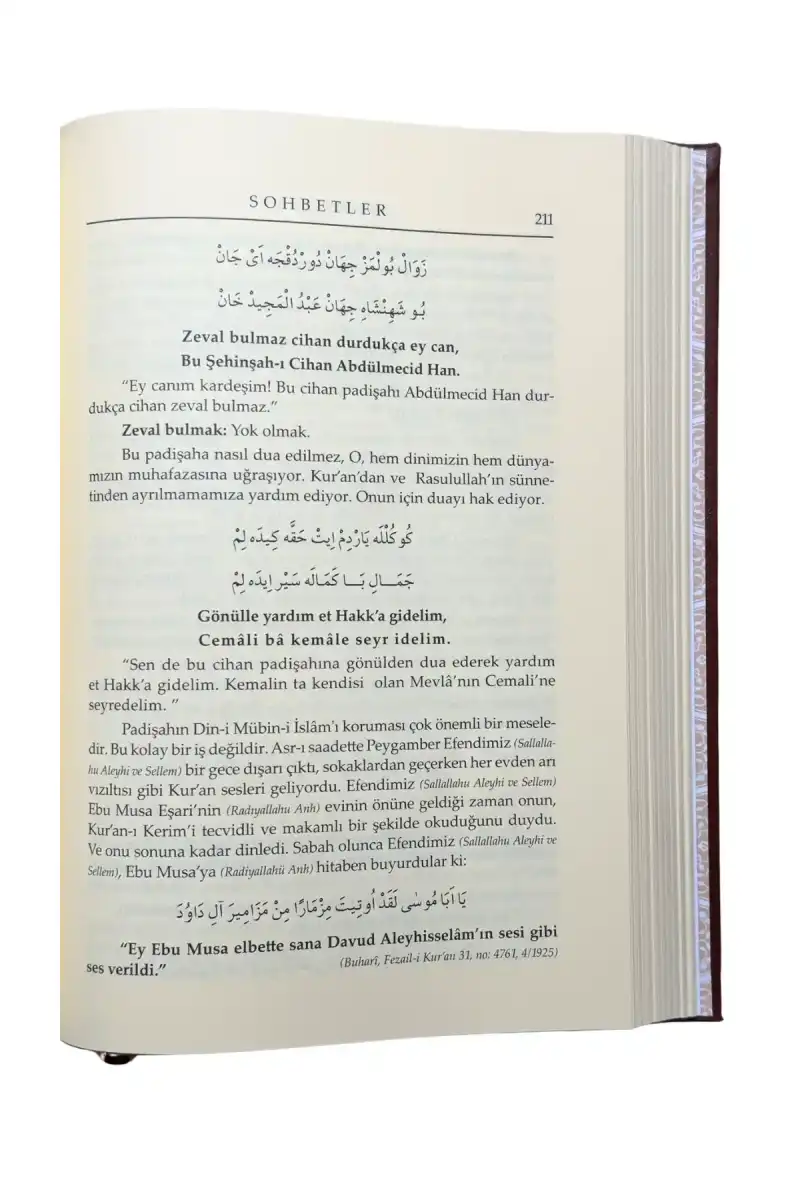 SOHBETLER
211
زَوَالْ بُولْمَزْ جِهَانْ دُورْدُقْجَه اَىْ جَانْ
بُو شَهِنْشَاهِ جِهَانْ عَبْدُ الْمَجِيدْ خَانْ
Zeval bulmaz cihan durdukça ey can,
Bu Şehinşah-ı Cihan Abdülmecid Han.
“Ey canım kardeşim! Bu cihan padişahı Abdülmecid Han dur-
dukça cihan zeval bulmaz.”
Zeval bulmak: Yok olmak.
Bu padişaha nasıl dua edilmez, O, hem dinimizin hem dünya-
mızın muhafazasına uğraşıyor. Kur’an’dan ve Rasulullah’ın sünne-
tinden ayrılmamamıza yardım ediyor. Onun için duayı hak ediyor.
كُوكُلْلَه يَارْدِمْ اِيتْ حَقَّه كِيدَه لِمْ
جَمَالِ بَا كَمَالَه سَيْر اِيدَه لِمْ
Gönülle yardım et Hakk’a gidelim,
Cemâli bâ kemâle seyr idelim.
“Sen de bu cihan padişahına gönülden dua ederek yardım
et Hakk’a gidelim. Kemalin ta kendisi olan Mevlâ’nın Cemali’ne
seyredelim. ”
Padişahın Din-i Mübin-i İslâm’ı koruması çok önemli bir mesele-
dir. Bu kolay bir iş değildir. Asr-ı saadette Peygamber Efendimiz (Sallalla-
hu Aleyhi ve Sellem) bir gece dışarı çıktı, sokaklardan geçerken her evden arı
vızıltısı gibi Kur’an sesleri geliyordu. Efendimiz (Sallallahu Aleyhi ve Sellem)
Ebu Musa Eşari’nin (Radıyallahu Anh) evinin önüne geldiği zaman onun,
Kur’an-ı Kerim’i tecvidli ve makamlı bir şekilde okuduğunu duydu.
Ve onu sonuna kadar dinledi. Sabah olunca Efendimiz (Sallallahu Aleyhi ve
Sellem), Ebu Musa’ya (Radiyallahü Anh) hitaben buyurdular ki:
يَا اَبَا مُوسٰى لَقَدْ اُوتِيتَ مِزْمَارًا مِنْ مَزَامِيرَ آلِ دَاوُدَ
“Ey Ebu Musa elbette sana Davud Aleyhisselâm’ın sesi gibi
ses verildi.”
(Buharî, Fezail-i Kur’an 31, no: 4761, 4/1925)